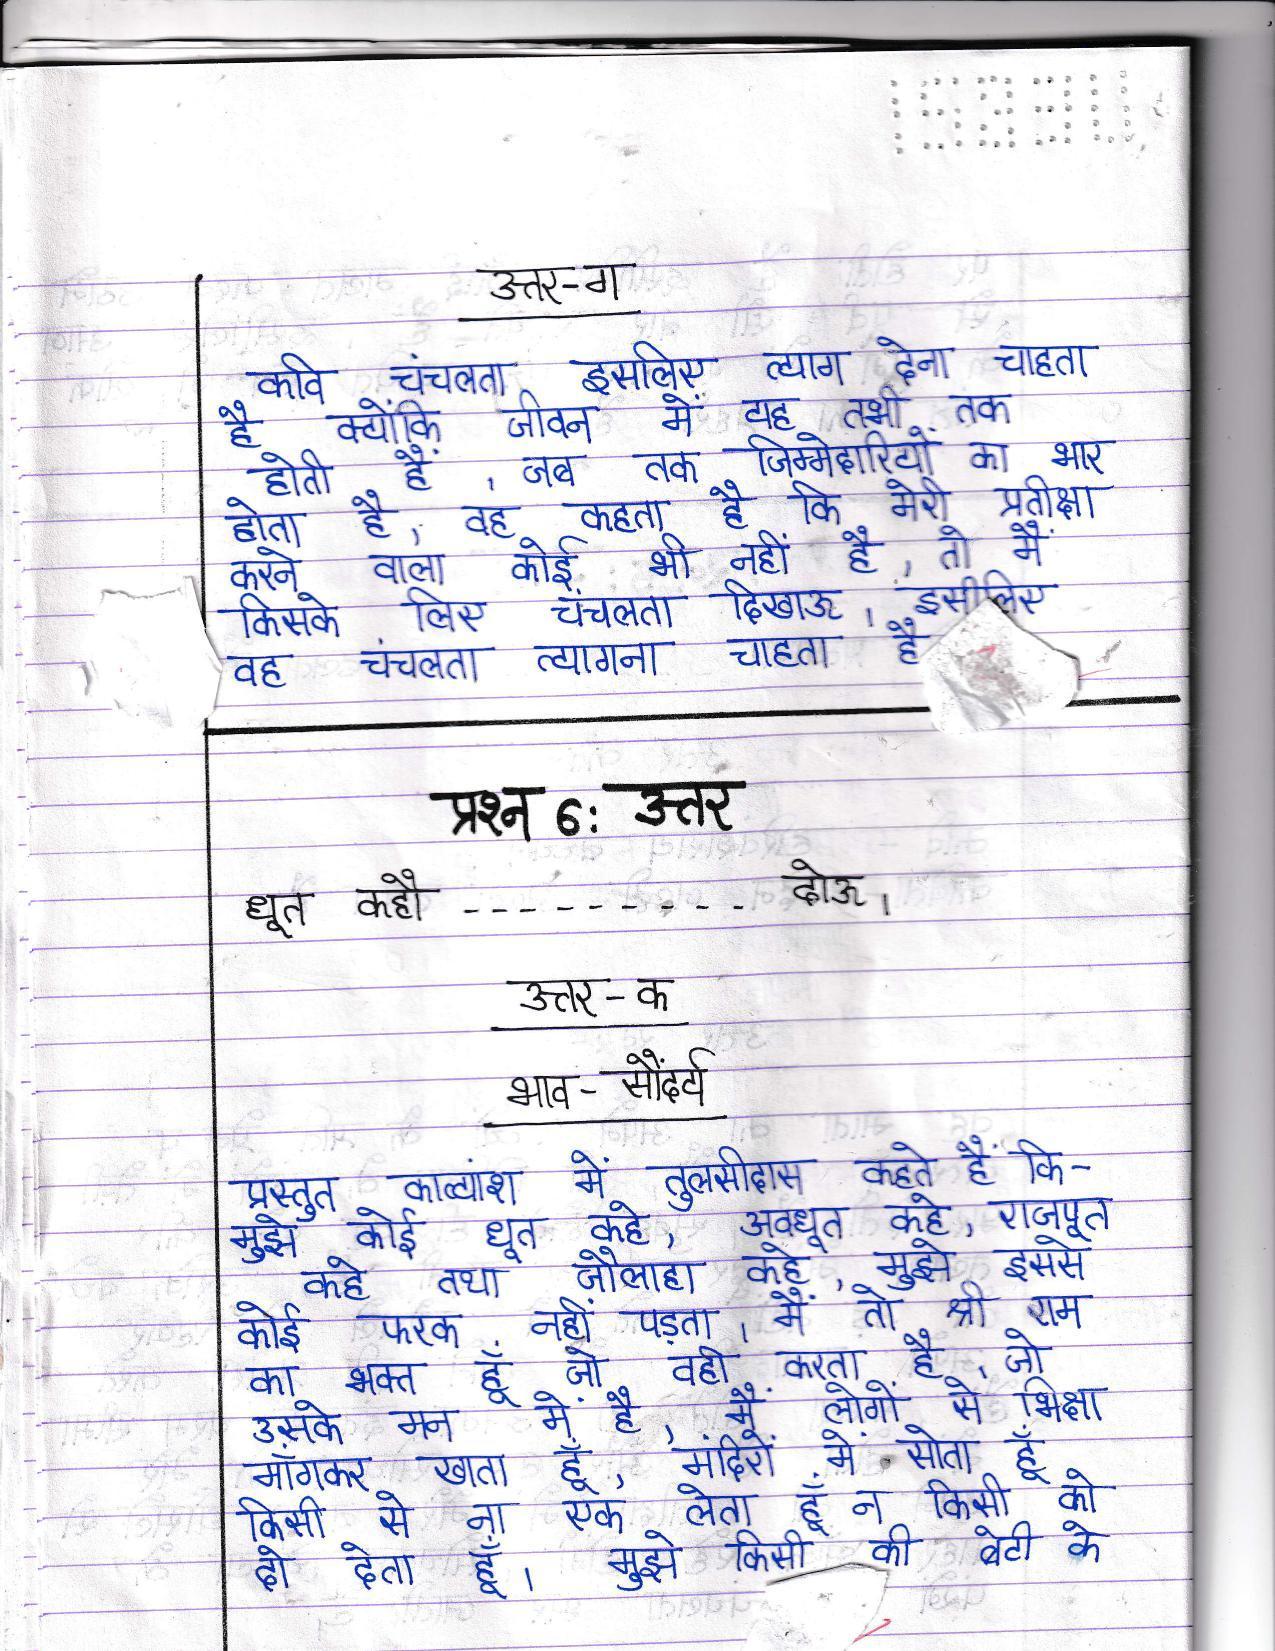 उत्तर-ग
कवि चंचलता इसलिए त्याग देना चाहता
है क्योंकि जीवन में यह तभी तक
होती हैं, जब तक जिम्मेदारियों का भार
होता है, वह कहता है कि मेरी प्रतीक्षा
करने वाला कोई भी नहीं है, तो मैं
किसके लिए चंचलता दिखाऊ, इसीलिए
वह चंचलता त्यागना चाहता है
प्रश्न 6: उत्तर
धूत कहौ ---------- दोऊ।
उत्तर-क
भाव-सौंदर्य
प्रस्तुत काव्यांश में तुलसीदास कहते हैं कि-
मुझे कोई धूत कहे, अवधूत कहे, राजपूत
कहे तथा जौलाहा कहे, मुझे इससे
कोई फरक नहीं पड़ता, मैं तो श्री राम
का भक्त हूँ जो वही करता है, जो
उसके मन में है, मैं लोगों से भिक्षा
माँगकर खाता हूँ, मंदिरों में सोता हूँ
किसी से ना एक लेता हूँ न किसी को
दो देता हूँ। मुझे किसी की बेटी के